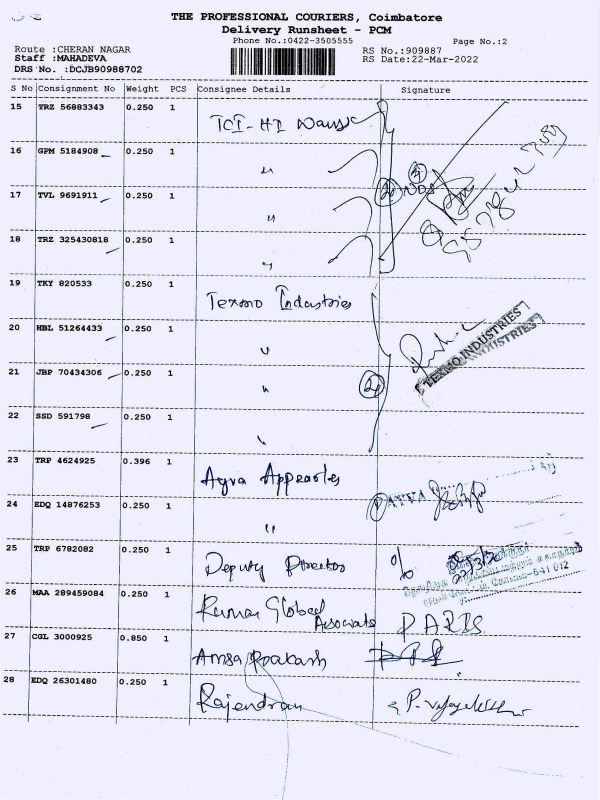 THE PROFESSIONAL COURIERS, Coimbatore
Delivery Runsheet - PCM
Phone No.:0422-3505555
Page No.:2
Route :CHERAN NAGAR
RS No.:909887
Staff :MAHADEVA
RS Date:22-Mar-2022
DRS No. :DCJB90988702
S No Consignment No Weight PCS Consignee Details Signature
15 TRZ 56883343 0.250 1
16 GPM 5184908 0.250 1 "
17 TVL 9691911 0.250 1 "
18 TRZ 325430818 0.250 1 "
19 TKY 820533 0.250 1 Texmo Industries
20 HBL 51264433 0.250 1 "
TEXMO INDUSTRIES
21 JBP 70434306 0.250 1 "
22 SSD 591798 0.250 1 "
23 TRP 4624925 0.396 1
24 EDQ 14876253 0.250 1 "
25 TRP 6782082 0.250 1 Deputy Director
26 MAA 289459084 0.250 1 Kumar Global Associates
27 CGL 3000925 0.850 1 Amsa Prakash
28 EDQ 26301480 0.250 1 Rajendran